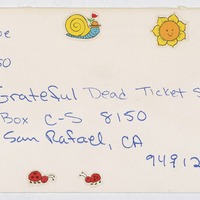 Grateful Dead Ticket S
Box C-S 8150
San Rafael, CA
9491